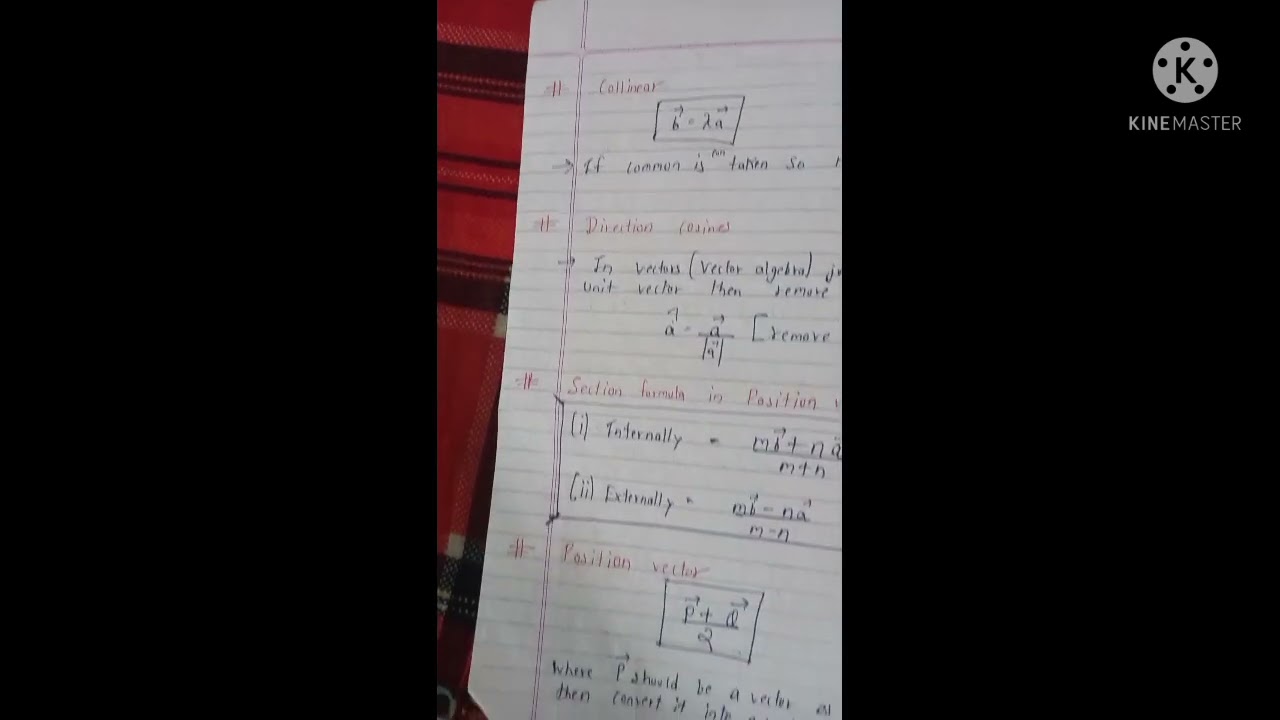 # Collinear
b⃗ = λa⃗
→ If common is can taken so
# Direction cosines
→ In vectors (vector algebra)
unit vector then remove
â = a⃗/|a⃗| [remove
# Section formula in Position
(i) Internally = mb⃗ + na⃗ / m+n
(ii) Externally = mb⃗ - na⃗ / m-n
# Position vector
P⃗ + Q⃗ / 2
Where P⃗ should be a vector
then convert it into
K
KINEMASTER